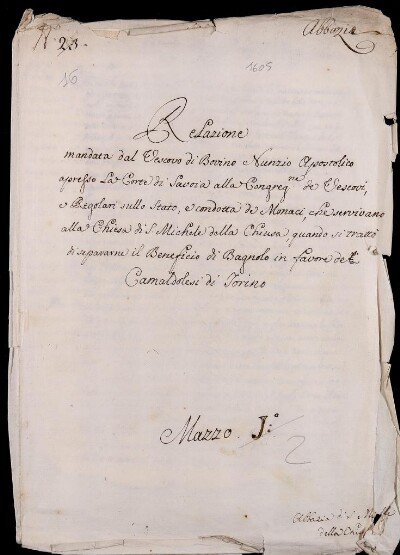 N. 23.
Abbazie
16
1605
Relazione
mandata dal Vescovo di Bovino e Nunzio Apostolico
apresso La Corte di Savoia alla Congreg.ne de Vescovi,
e Regolari sullo Stato, e condotta de Monaci, che servivano
alla Chiesa di S. Michele della Chiusa, quando si trattò
di separarne il Beneficio di Bagnolo in favore de
Camaldolesi di Torino
Mazzo. J.o
2
Abbazia di S. Michele
della Chiusa